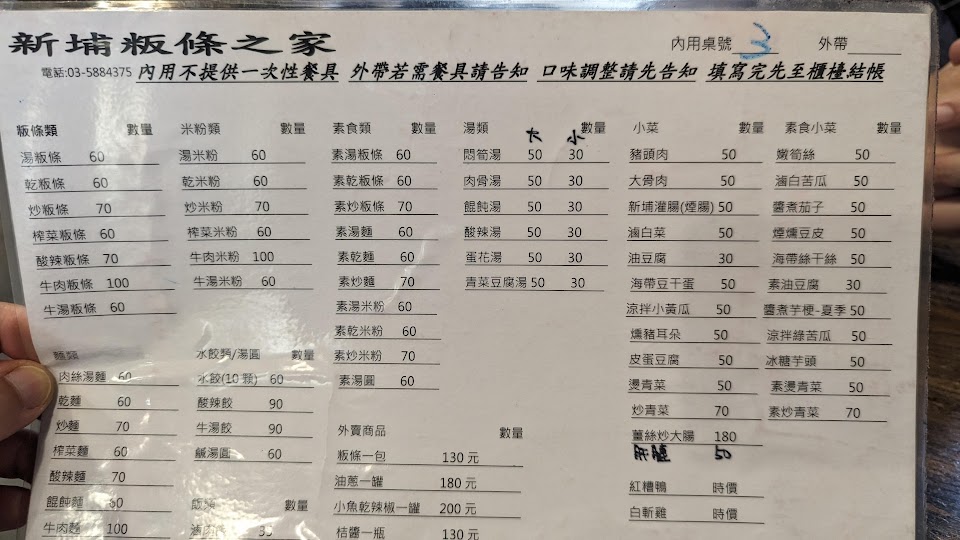 新埔粄條之家
內用桌號 3 外帶
電話:03-5884375 內用不提供一次性餐具 外帶若需餐具請告知 口味調整請先告知 填寫完先至櫃檯結帳
粄條類 數量
湯粄條 60
乾粄條 60
炒粄條 70
榨菜粄條 60
酸辣粄條 70
牛肉粄條 100
牛湯粄條 60
米粉類 數量
湯米粉 60
乾米粉 60
炒米粉 70
榨菜米粉 60
牛肉米粉 100
牛湯米粉 60
素食類 數量
素湯粄條 60
素乾粄條 60
素炒粄條 70
素湯麵 60
素乾麵 60
素炒麵 70
素湯米粉 60
素乾米粉 60
素炒米粉 70
素湯圓 60
湯類 大 小 數量
悶筍湯 50 30
肉骨湯 50 30
餛飩湯 50 30
酸辣湯 50 30
蛋花湯 50 30
青菜豆腐湯 50 30
小菜 數量
豬頭肉 50
大骨肉 50
新埔灌腸(煙腸) 50
滷白菜 50
油豆腐 30
海帶豆干蛋 50
涼拌小黃瓜 50
燻豬耳朵 50
皮蛋豆腐 50
燙青菜 50
炒青菜 70
薑絲炒大腸 180
肝腱 50
紅糟鴨 時價
白斬雞 時價
素食小菜 數量
嫩筍絲 50
滷白苦瓜 50
醬煮茄子 50
煙燻豆皮 50
海帶絲干絲 50
素油豆腐 30
醬煮芋梗-夏季 50
涼拌綠苦瓜 50
冰糖芋頭 50
素燙青菜 50
素炒青菜 70
麵類
肉絲湯麵 60
乾麵 60
炒麵 70
榨菜麵 60
酸辣麵 70
餛飩麵 60
牛肉麵 100
水餃類/湯圓 數量
水餃(10顆) 60
酸辣餃 90
牛湯餃 90
鹹湯圓 60
飯類 數量
滷肉
外賣商品 數量
粄條一包 130元
油蔥一罐 180元
小魚乾辣椒一罐 200元
桔醬一瓶 130元